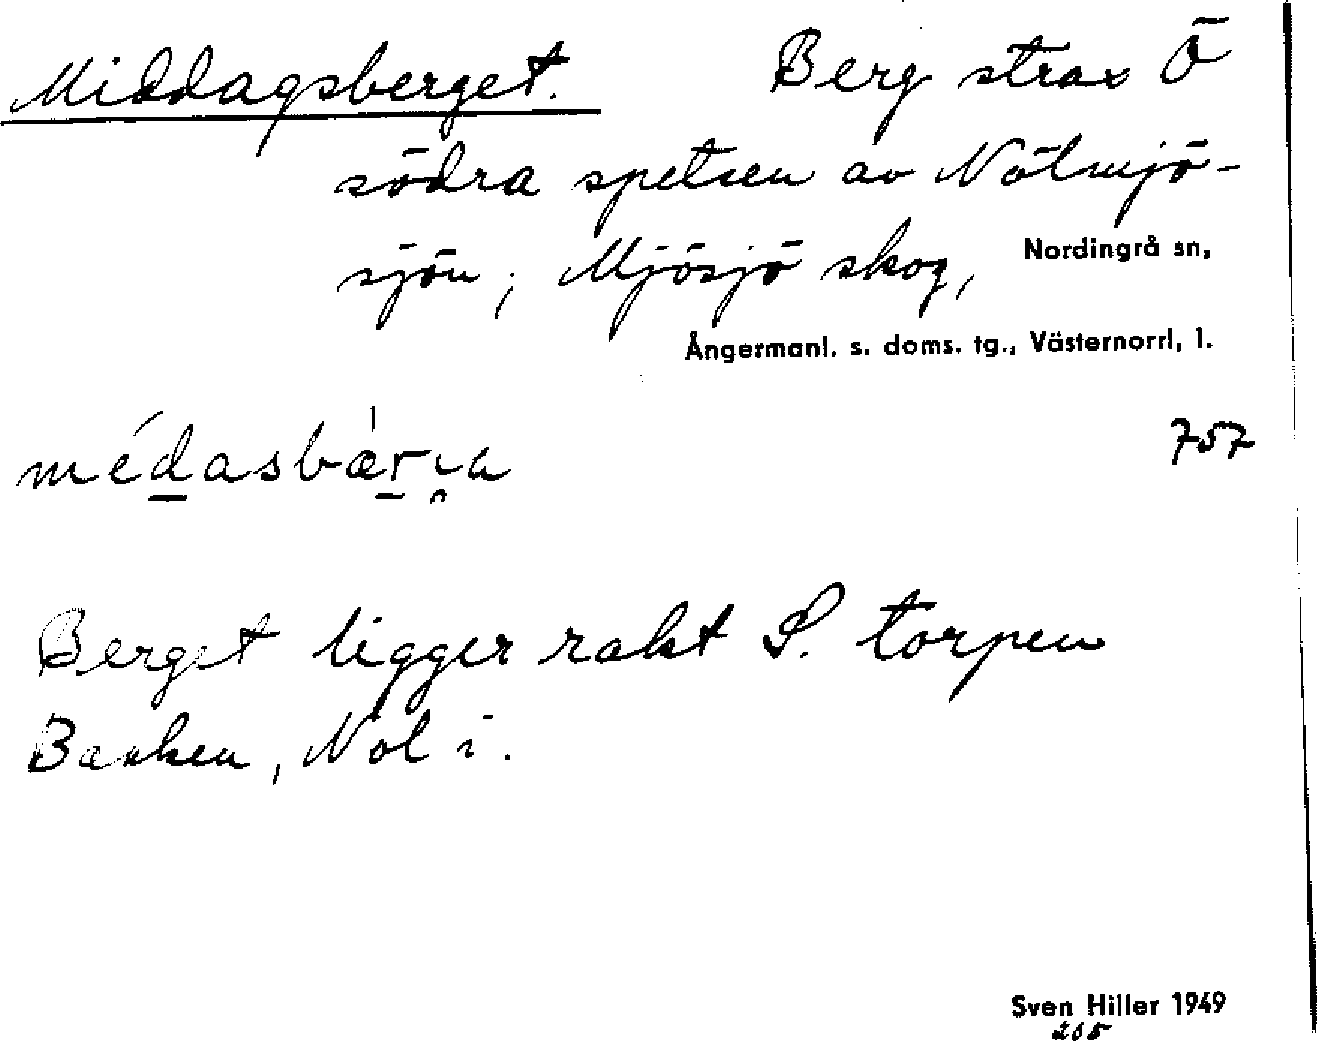 Middagsberget. Berg strax Ö
södra spetsen av Nötmjö-
sjön; Mjösjö skog, Nordingrå sn,
Ångermanl. s. doms. tg., Västernorrl. l.
757
Berget ligger rakt S. torpen
Backen, Nol i.
Sven Hiller 1949
205